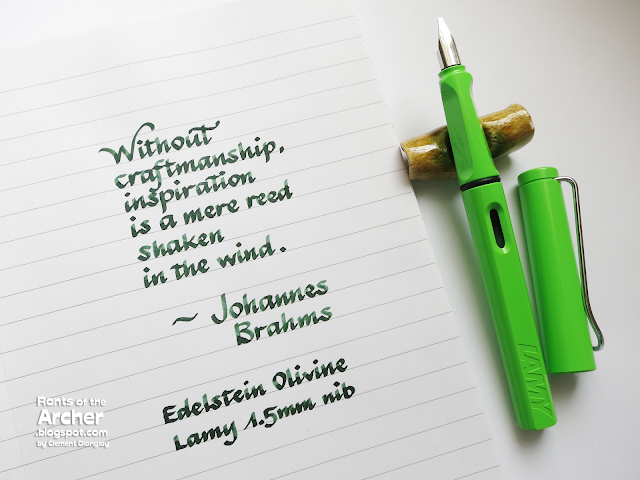 Without
craftmanship,
inspiration
is a mere reed
shaken
in the wind.
~ Johannes
Brahms
Edelstein Olivine
Lamy 1.5mm nib
LAMY
Rants of the
Archer
.blogspot.com
by Clement Dionglay